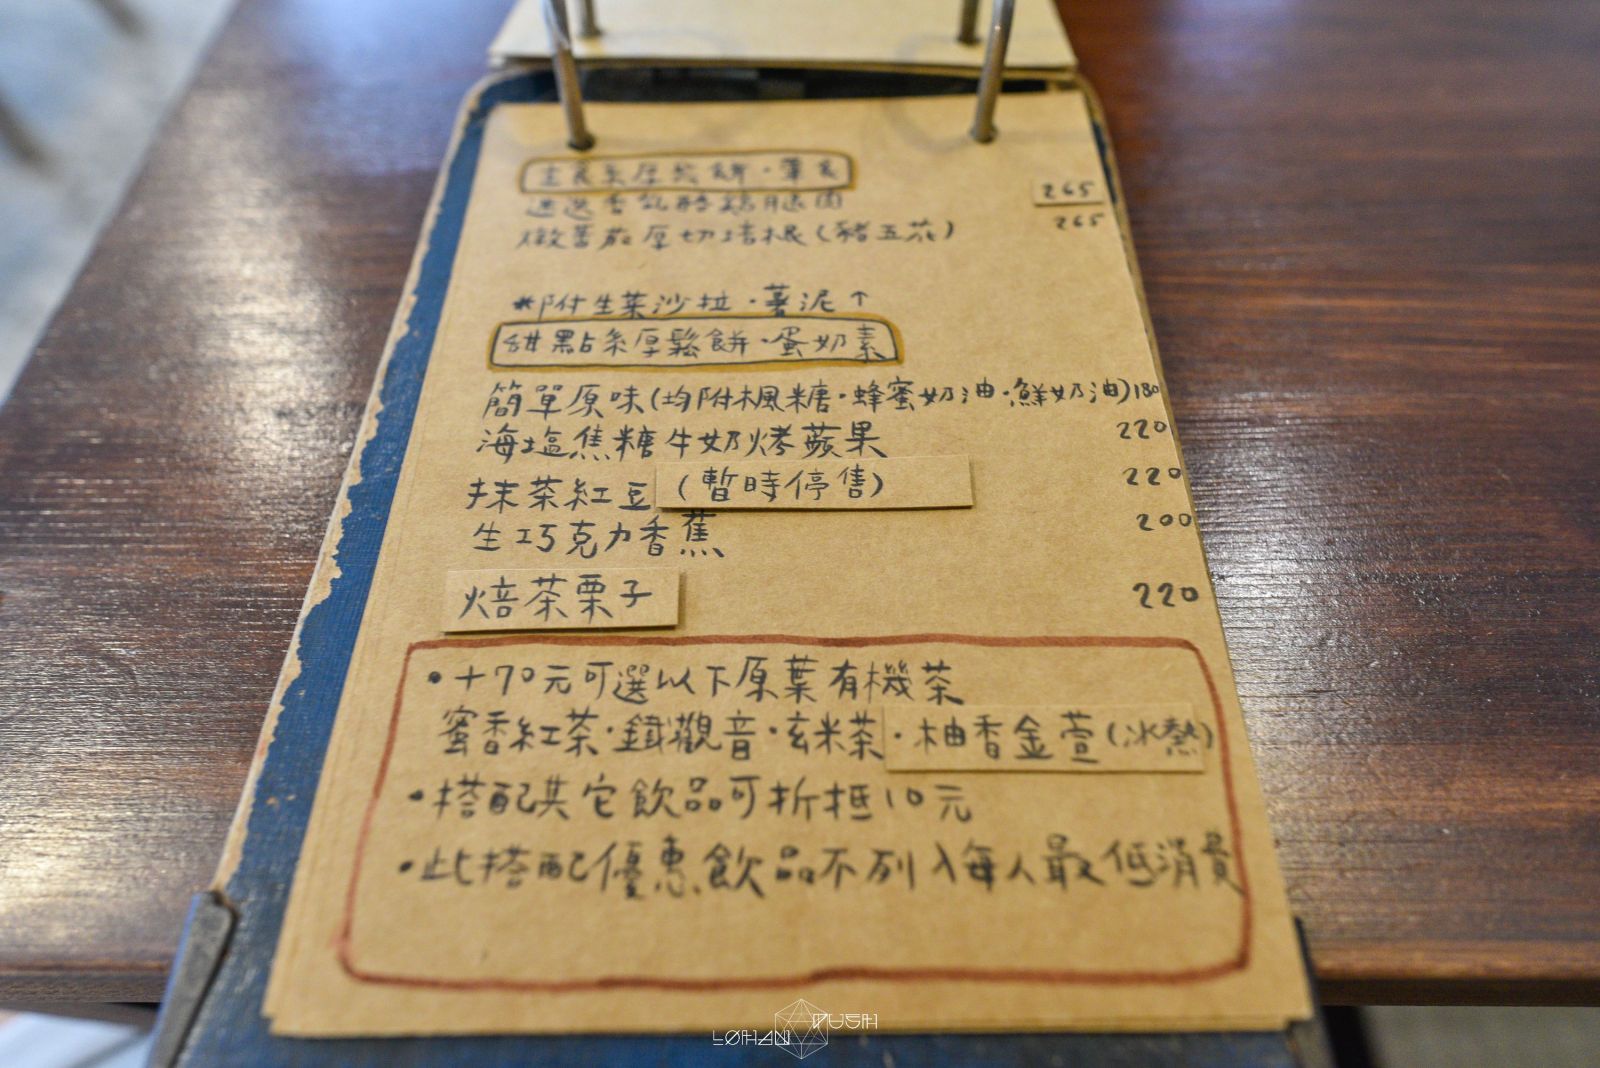 主食系厚鬆餅·葷食
265
香乳酪雞腿肉
265
燉蕃茄厚切培根(豬五花)
*附生菜沙拉·薯泥↑
甜點系厚鬆餅·蛋奶素
簡單原味(均附楓糖·蜂蜜奶油·鮮奶油)180
海塩焦糖牛奶烤蘋果 220
抹茶紅豆(暫時停售) 220
生巧克力香蕉 200
焙茶栗子 220
·+70元可選以下原葉有機茶
蜜香紅茶·鐵觀音·玄米茶·柚香金萱(冰熱)
·搭配其它飲品可折抵10元
·此搭配優惠飲品不列入每人最低消費
LOHAN
PUSH